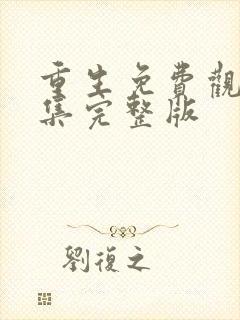 重生免費觀
集完整版
劉復之